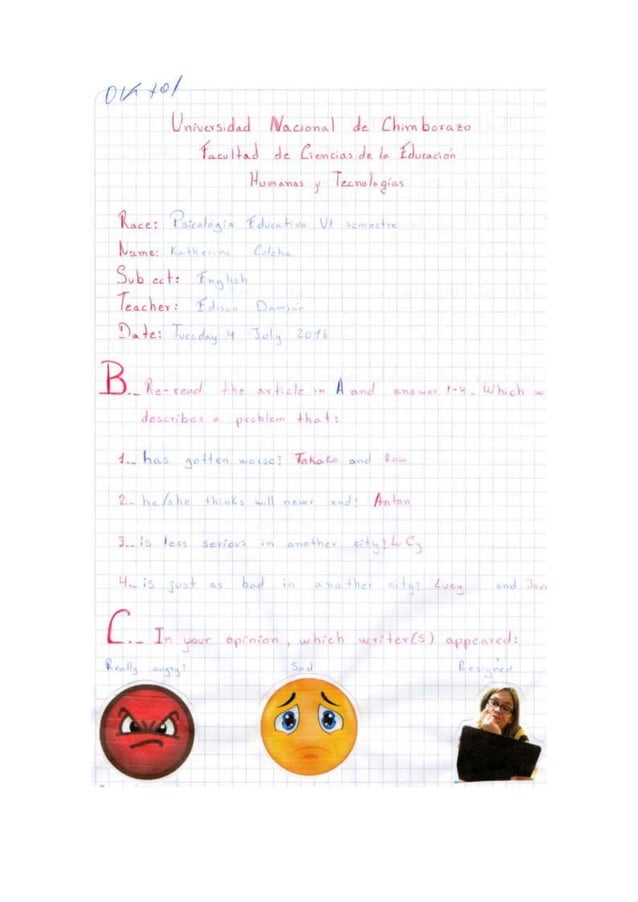 Universidad Nacional de Chimborazo
Facultad de Ciencias de la Educación
Humanas y Tecnologías
Race: Psicología Educativa VI semestre
Name: Katherine Colcha
Sub ect: English
Teacher: Edison Damian
Date: Tuesday 4 July 2016
B._ Re-read the article in A and answer 1-4. Which w
describes a problem that:
1._ has gotten worse? Takako and
2_ he/she thinks will never end? Anton
3._ is less serious in another city? Lucy
4._ is just as bad in another city? Lucy and
C._ In your opinion, which writer(s) appeared:
Really angry? Sad Resigned